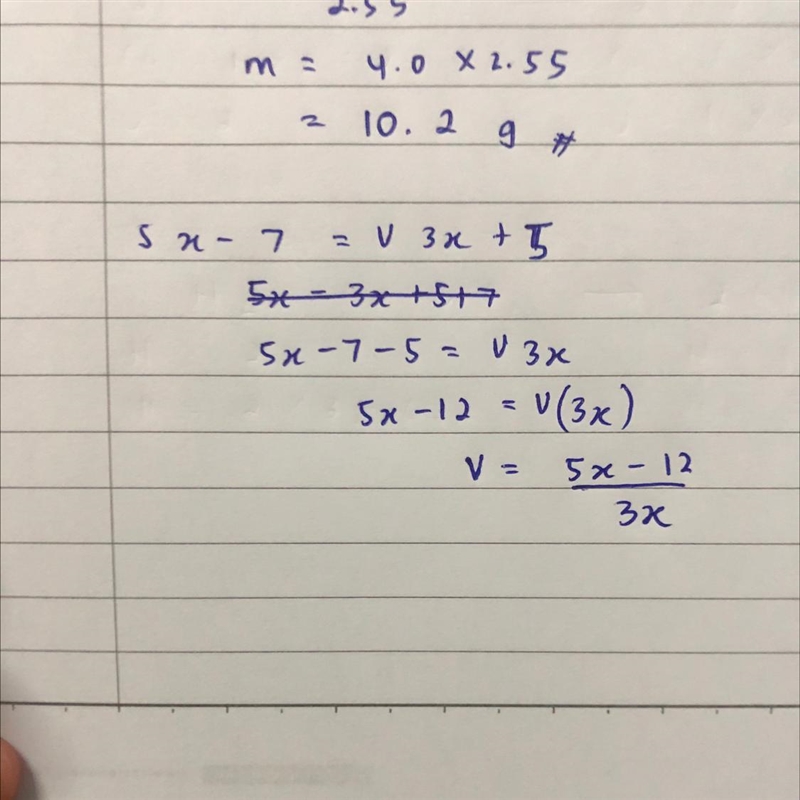 2.55
m = 4.0 × 2.55
= 10.2 g #
5x - 7 = V 3x + 5
5x = 3x + 5 + 7
5x - 7 - 5 = V 3x
5x - 12 = V(3x)
V = 5x - 12
3x